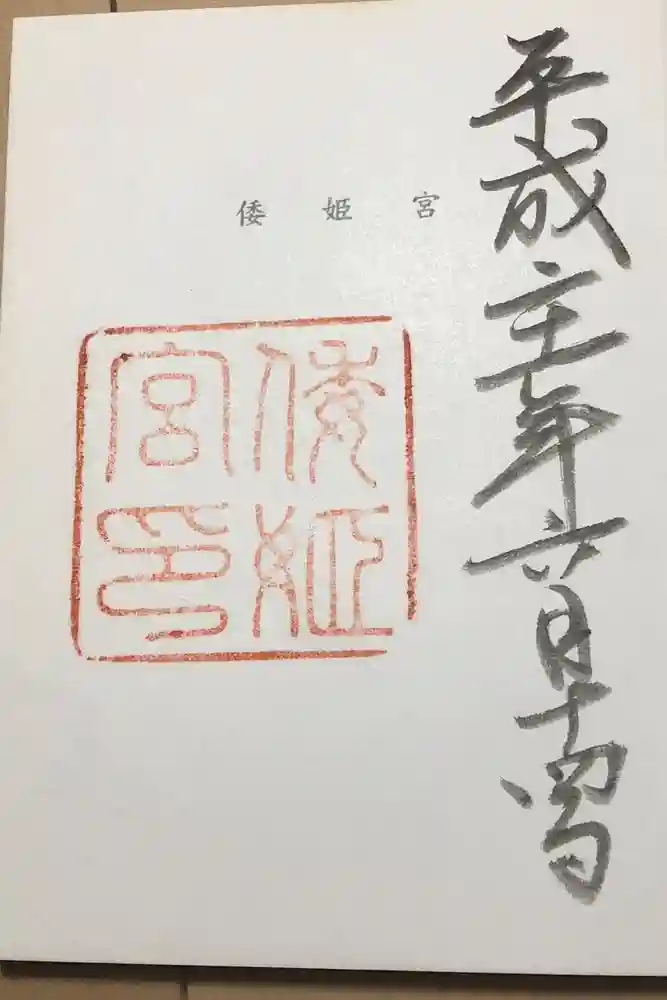 平成三十年六月十四日
倭姫宮
倭姫
宮印